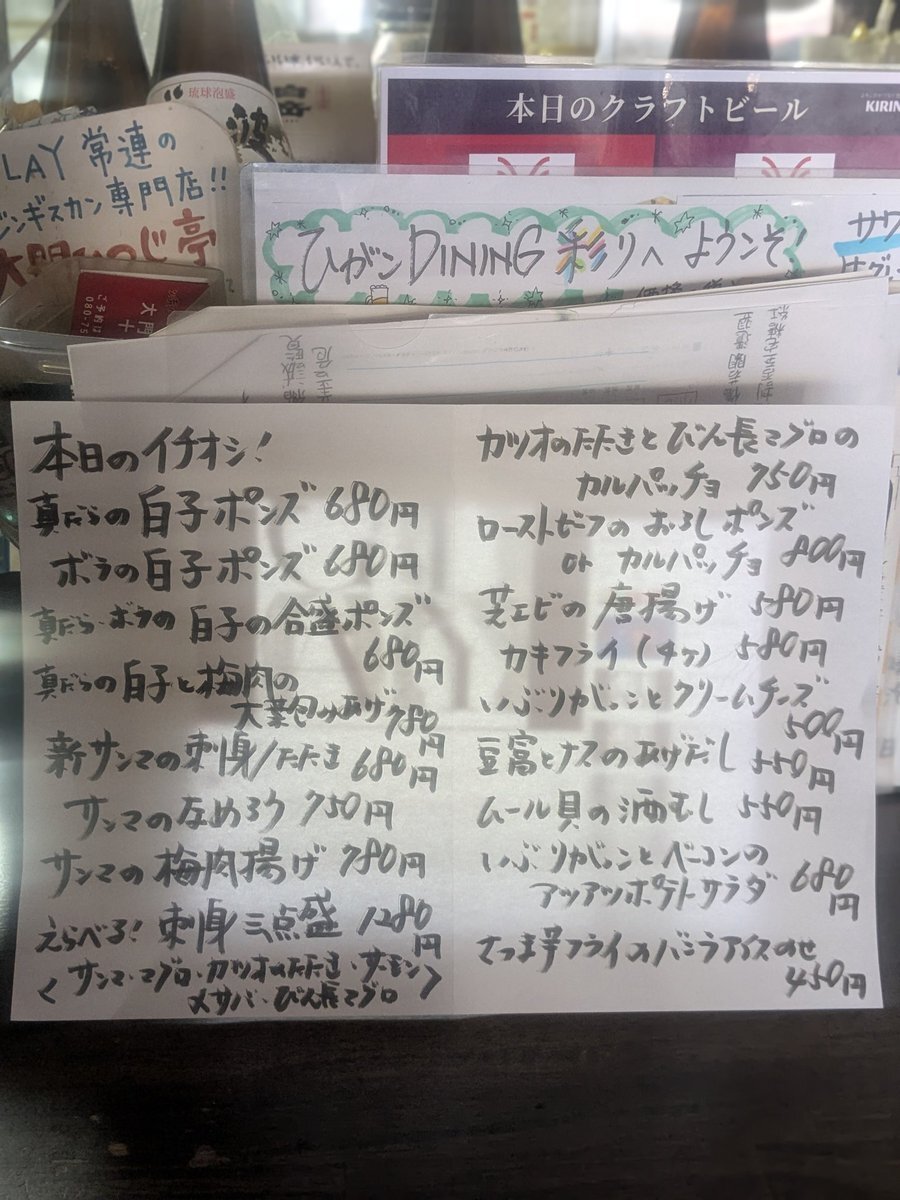 琉球泡盛
本日のクラフトビール
KIRIN
LAY 常連の
ジンギスカン専門店!!
大門ひつじ亭
ひがしDINING 彩りへ ようこそ!
サワ
ご予約は
080-75
大門
本日のイチオシ!
真だらの白子ポンズ 680円
ボラの白子ポンズ 680円
真だら・ボラの白子の合盛ポンズ
680円
真だらの白子と梅肉の
大葉包みあげ 780円
新サンマの刺身/たたき 680円
サンマのなめろう 750円
サンマの梅肉揚げ 780円
えらべる! 刺身三点盛 1280円
<サンマ・マグロ・カツオのたたき・サーモン>
〆サバ・びん長マグロ
カツオのたたきとびん長マグロの
カルパッチョ 750円
ローストビーフのおろしポンズ
or カルパッチョ 800円
芝エビの唐揚げ 580円
カキフライ(4ヶ) 580円
いぶりがっことクリームチーズ
500円
豆富とナスのあげだし 550円
ムール貝の酒むし 550円
いぶりがっことベーコンの
アツアツポテトサラダ 680円
さつま芋フライのバニラアイスのせ
450円